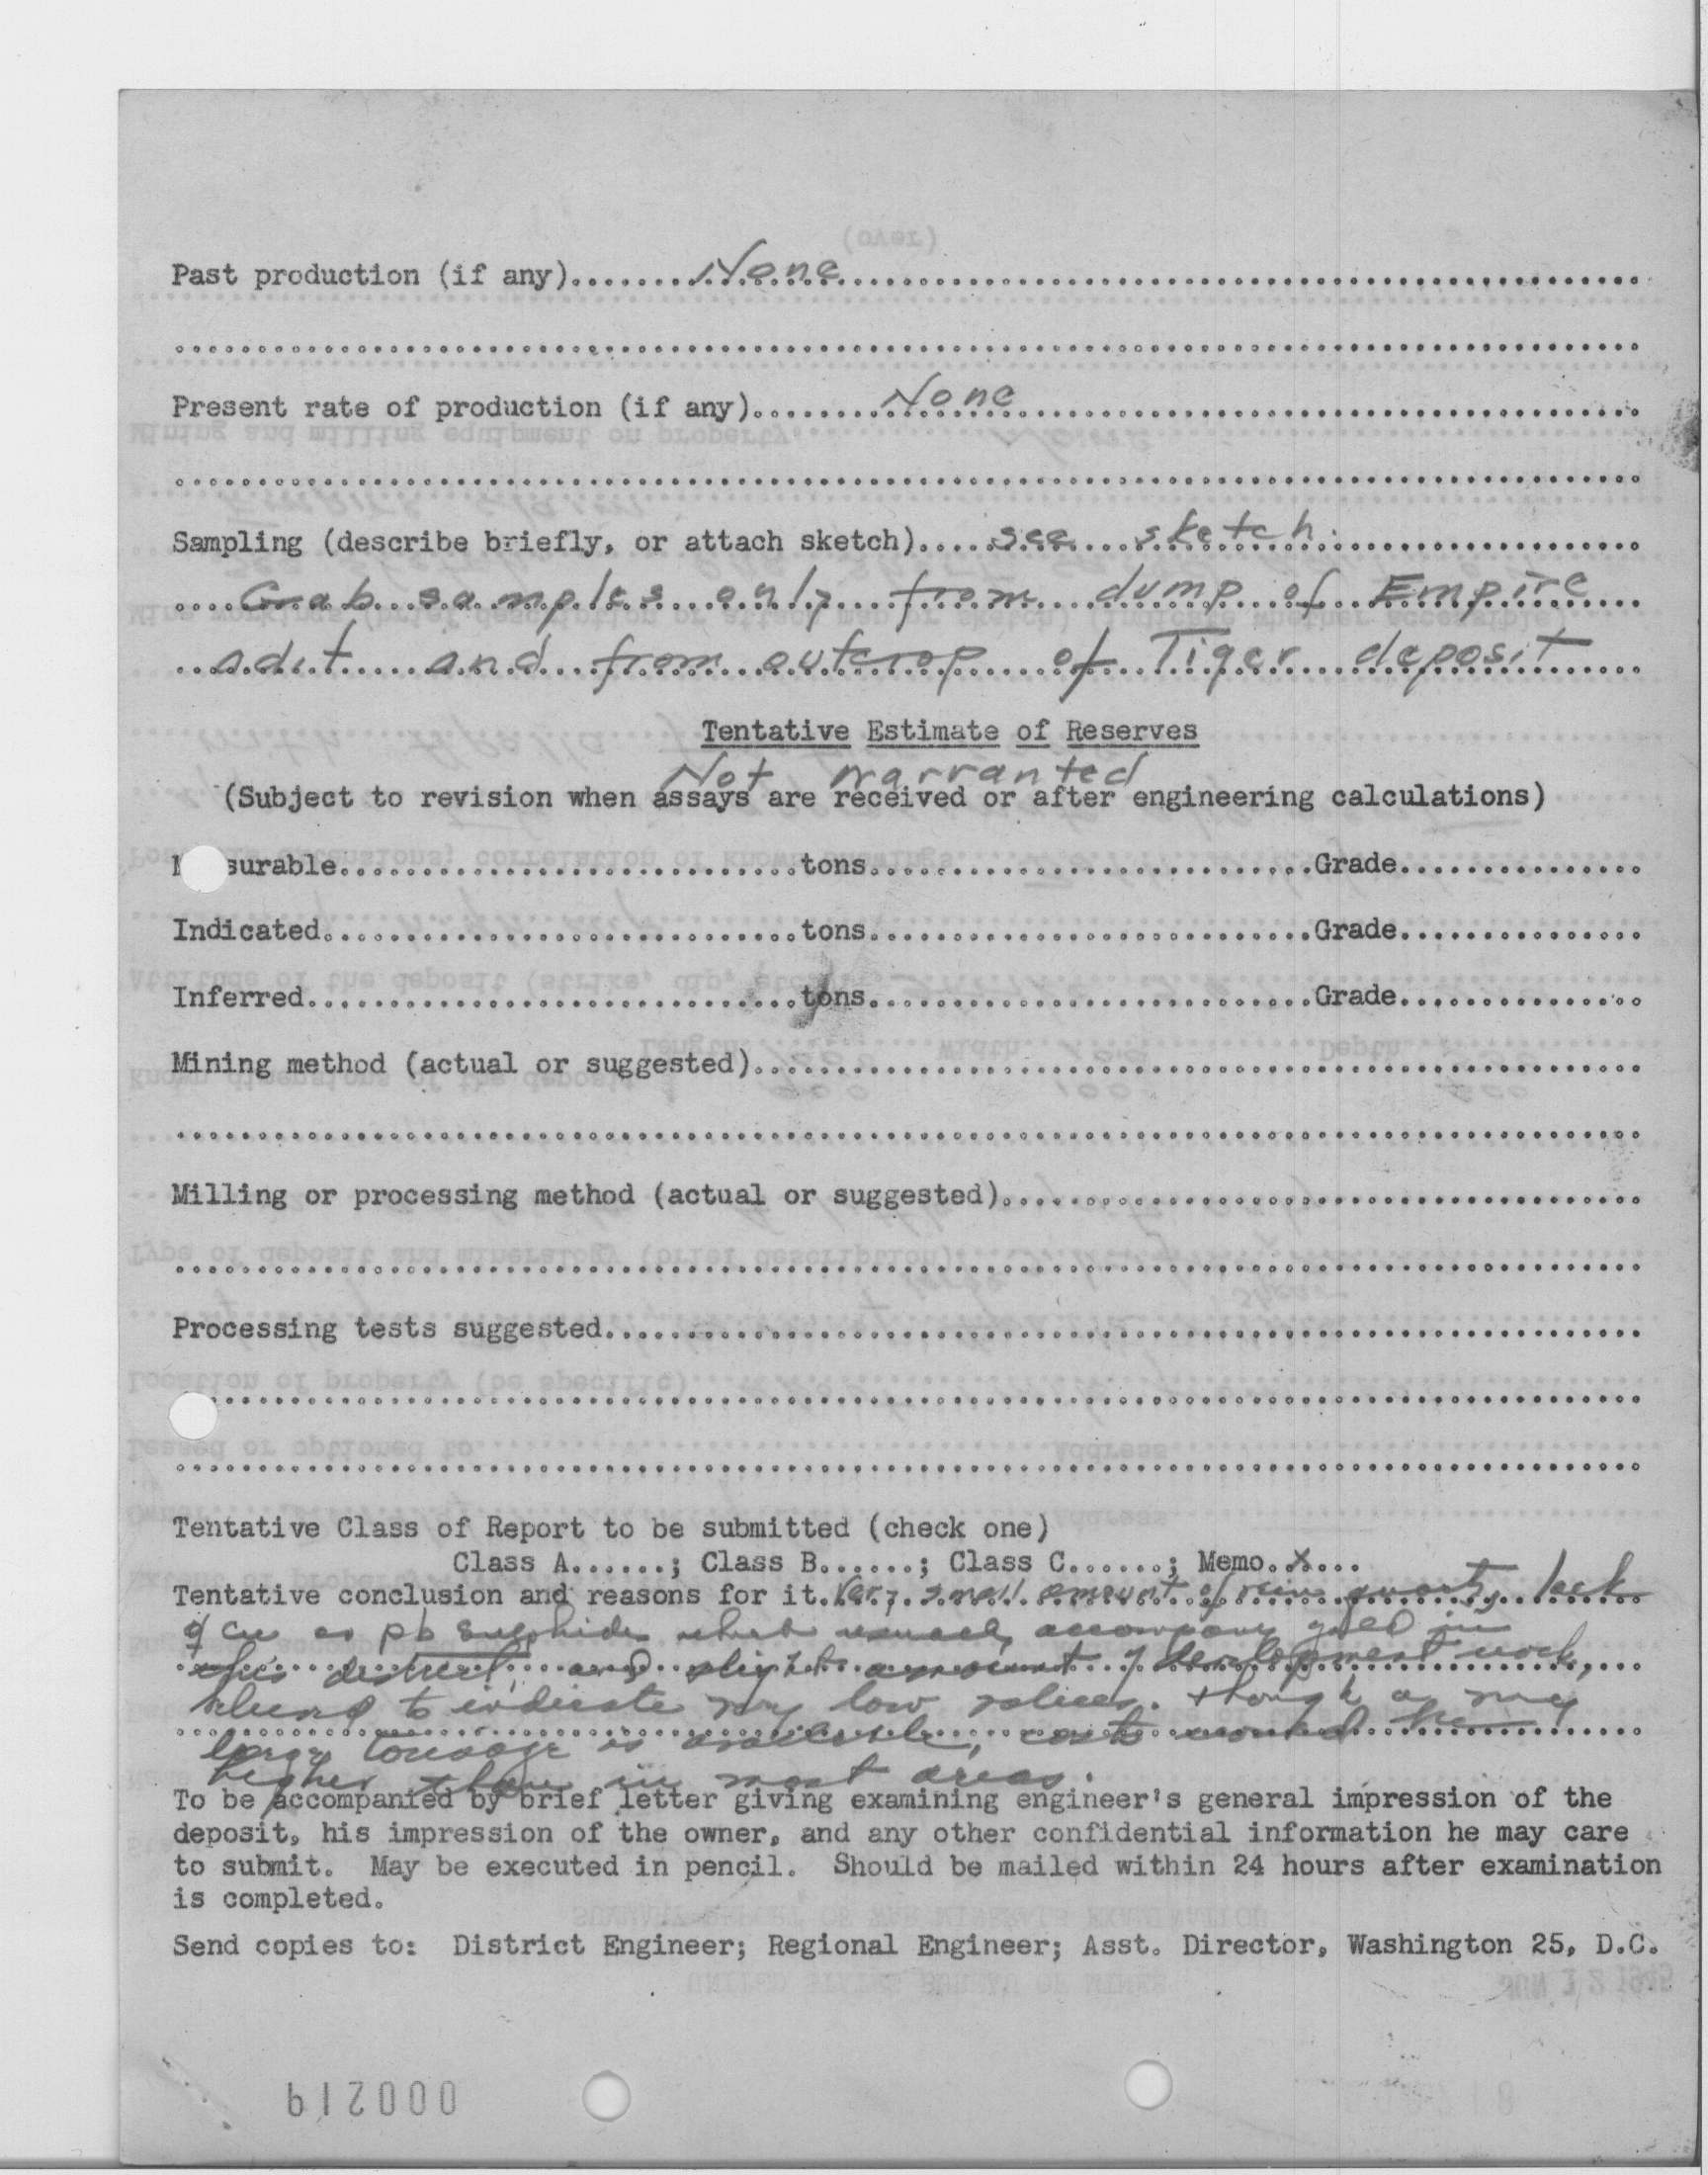 Past production (if any).......None
Present rate of production (if any).......None
Sampling (describe briefly, or attach sketch)....see sketch.
Grab samples only from dump of Empire
adit and from outcrop of Tiger deposit
Tentative Estimate of Reserves
Not warranted
(Subject to revision when assays are received or after engineering calculations)
M surable............tons............Grade............
Indicated............tons............Grade............
Inferred............tons............Grade............
Mining method (actual or suggested)............
Milling or processing method (actual or suggested)............
Processing tests suggested............
Tentative Class of Report to be submitted (check one)
Class A......; Class B......; Class C......; Memo..x...
Tentative conclusion and reasons for it. Very small amount of vein quartz, lack
of Cu or pb sulphides which usually accompany gold in
this district, and slight amount of development work,
seems to indicate very low values. though a very
large tonnage is available, costs would be
higher than in most areas.
To be accompanied by brief letter giving examining engineer's general impression of the
deposit, his impression of the owner, and any other confidential information he may care
to submit. May be executed in pencil. Should be mailed within 24 hours after examination
is completed.
Send copies to: District Engineer; Regional Engineer; Asst. Director, Washington 25, D.C.